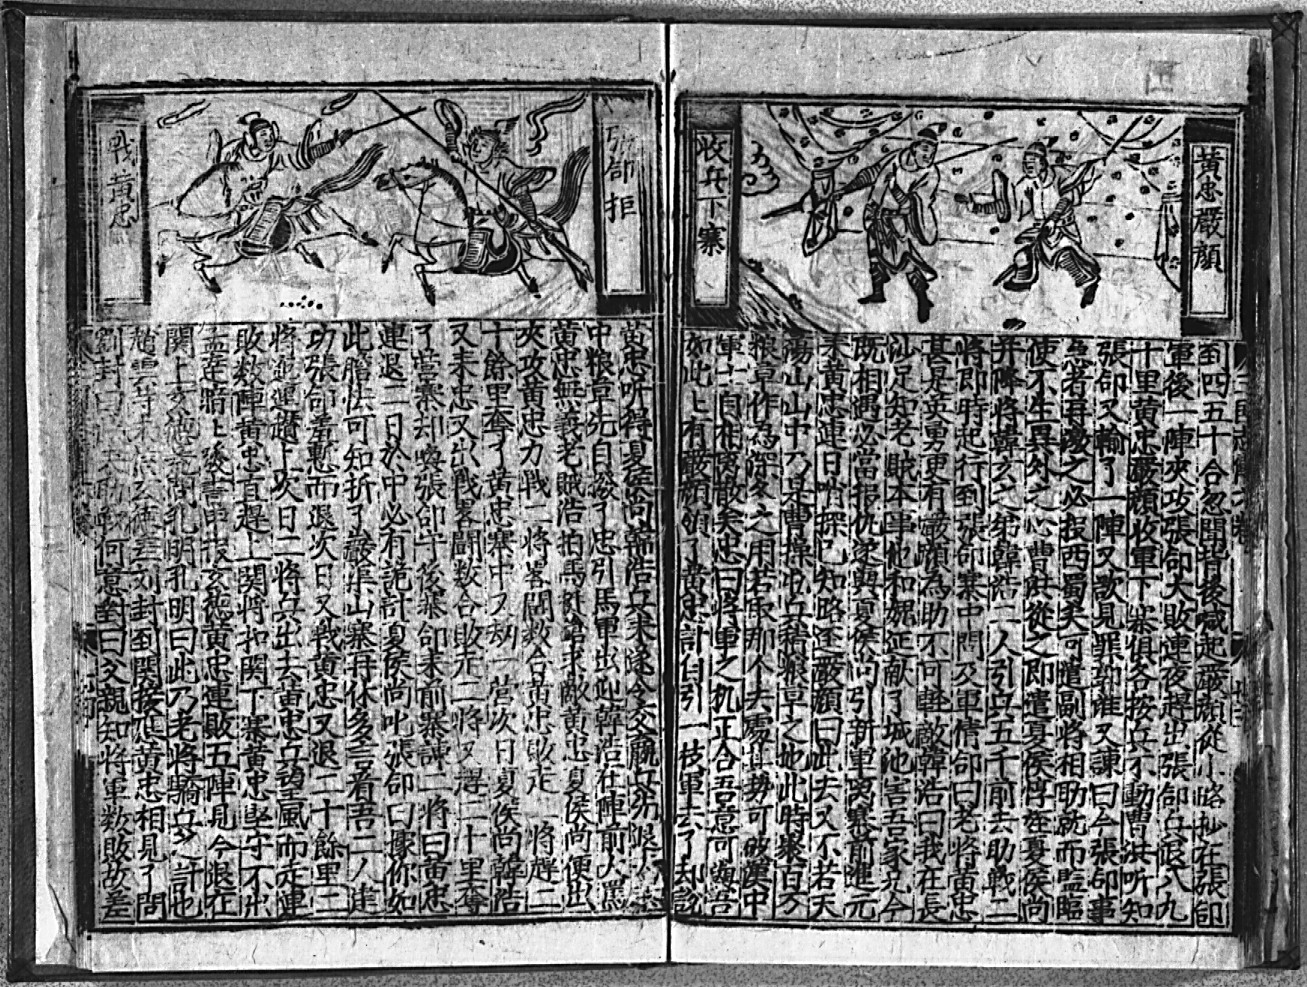 黃忠嚴顔
收兵下寨
到四五十合忽聞背後喊起嚴顔從小路抄在張郃
軍後一陣夾攻張郃大敗連夜趕出張郃兵退八九
十里黃忠嚴顔收軍下寨俱各按兵不動曹洪听知
張郃又輸了一陣又欲見罪郭淮又諫曰今張郃事
急若再
之必投西蜀矣可遣副將相助就而監臨
使不生異外之心曹洪從之即遣夏侯惇侄夏侯尚
并降將韓玄之弟韓浩二人引兵五千前去助戰二
將即時起行到張郃寨中問及軍情郃曰老將黃忠
甚是英勇更有嚴顔為助不可輕敵韓浩曰我在長
沙足知老賊本事他和魏延献了城池害吾家兄今
既相遇必當报仇遂與夏侯尚引新軍离寨前進元
来黃忠連日哨探已知路逕嚴顔曰此去又不若天
蕩山山中乃是曹操屯兵積糧草之地此時聚百万
粮草作為深冬之用若取那个去處其勢可破漢中
軍士自相离散矣忠曰將軍之机正合吾意可與吾
如此上有嚴顔領了黃忠計自引一枝軍去了却說
張郃拒
戰黃忠
黃忠听得夏侯尚韓浩兵来遂
中粮草先自發了忠引馬軍出迎韓浩在陣前大罵
黃忠無義老賊浩拍馬挺鎗来敵黃忠夏侯尚便出
夾攻黃忠力戰二將畧鬪数合黃忠敗走二將趕二
十餘里奪了黃忠寨中又劫一营次日夏侯尚韓浩
又来忠又出戰畧鬪数合敗走二將又趕二十里奪
了营寨却喚張郃守後寨郃来前寨諫二將曰黃忠
連退二日於中必有詭計夏侯尚叱張郃曰據你如
此膽怯可知折了嚴渠山寨再休多言看吾二人建
功張郃羞慙而退次日又戰黃忠又退二十餘里二
將迤運趲上次日二將兵出去黃忠兵望風而走連
敗数陣黃忠直趕上関將扣関下寨黃忠堅守不出
孟達暗上發書申投玄德黃忠連敗五陣見今退在
関上玄德荒問孔明孔明曰此乃老將驕兵之計也
趙雲等未信玄德差刘封到関接應黃忠相見了問
劉封曰
助戰何意封曰父親知將軍数敗故差